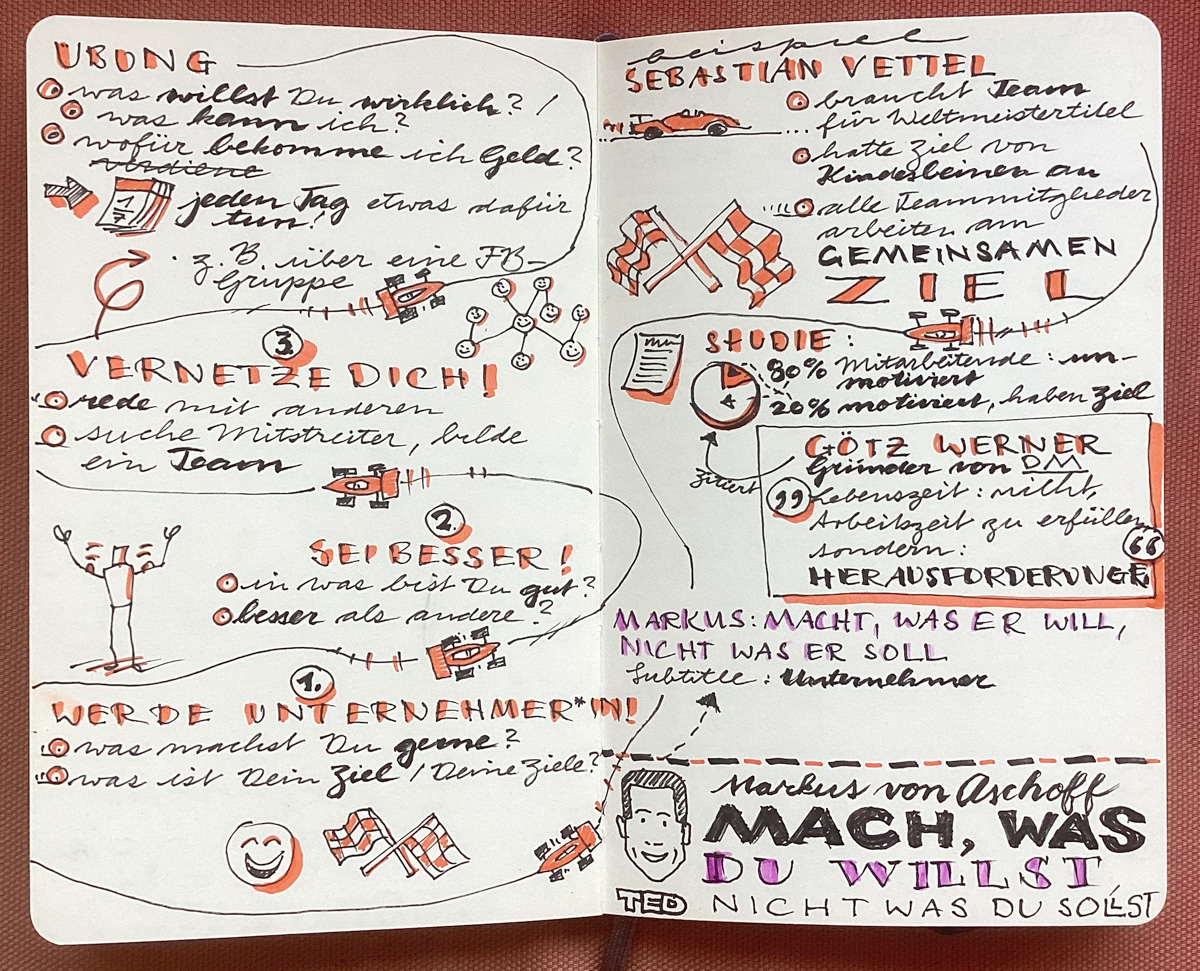 ÜBUNG
was willst Du wirklich? /
was kann ich?
wofür bekomme ich Geld?
verdiene
jeden Tag etwas dafür
tun!
z.B. über eine FB-
Gruppe
3.
VERNETZE DICH!
rede mit anderen
suche Mitstreiter, bilde
ein Team
2.
SEI BESSER!
in was bist Du gut?
besser als andere?
1.
WERDE UNTERNEHMER*IN!
was machst Du gerne?
was ist Dein Ziel / Deine Ziele?
beispiel
SEBASTIAN VETTEL
braucht Team
für Weltmeistertitel
hatte Ziel von
Kindesbeinen an
alle Teammitglieder
arbeiten am
GEMEINSAMEN
ZIEL
STUDIE:
80% Mitarbeitende: un-
motiviert
20% motiviert, haben Ziel
GÖTZ WERNER
Gründer von DM
zitiert
Lebenszeit: nicht,
Arbeitszeit zu erfüllen
sondern:
HERAUSFORDERUNGE
MARKUS: MACHT, WAS ER WILL,
NICHT WAS ER SOLL
Subtitle: Unternehmer
Markus von Aschoff
MACH, WAS
DU WILLST
TED NICHT WAS DU SOLLST